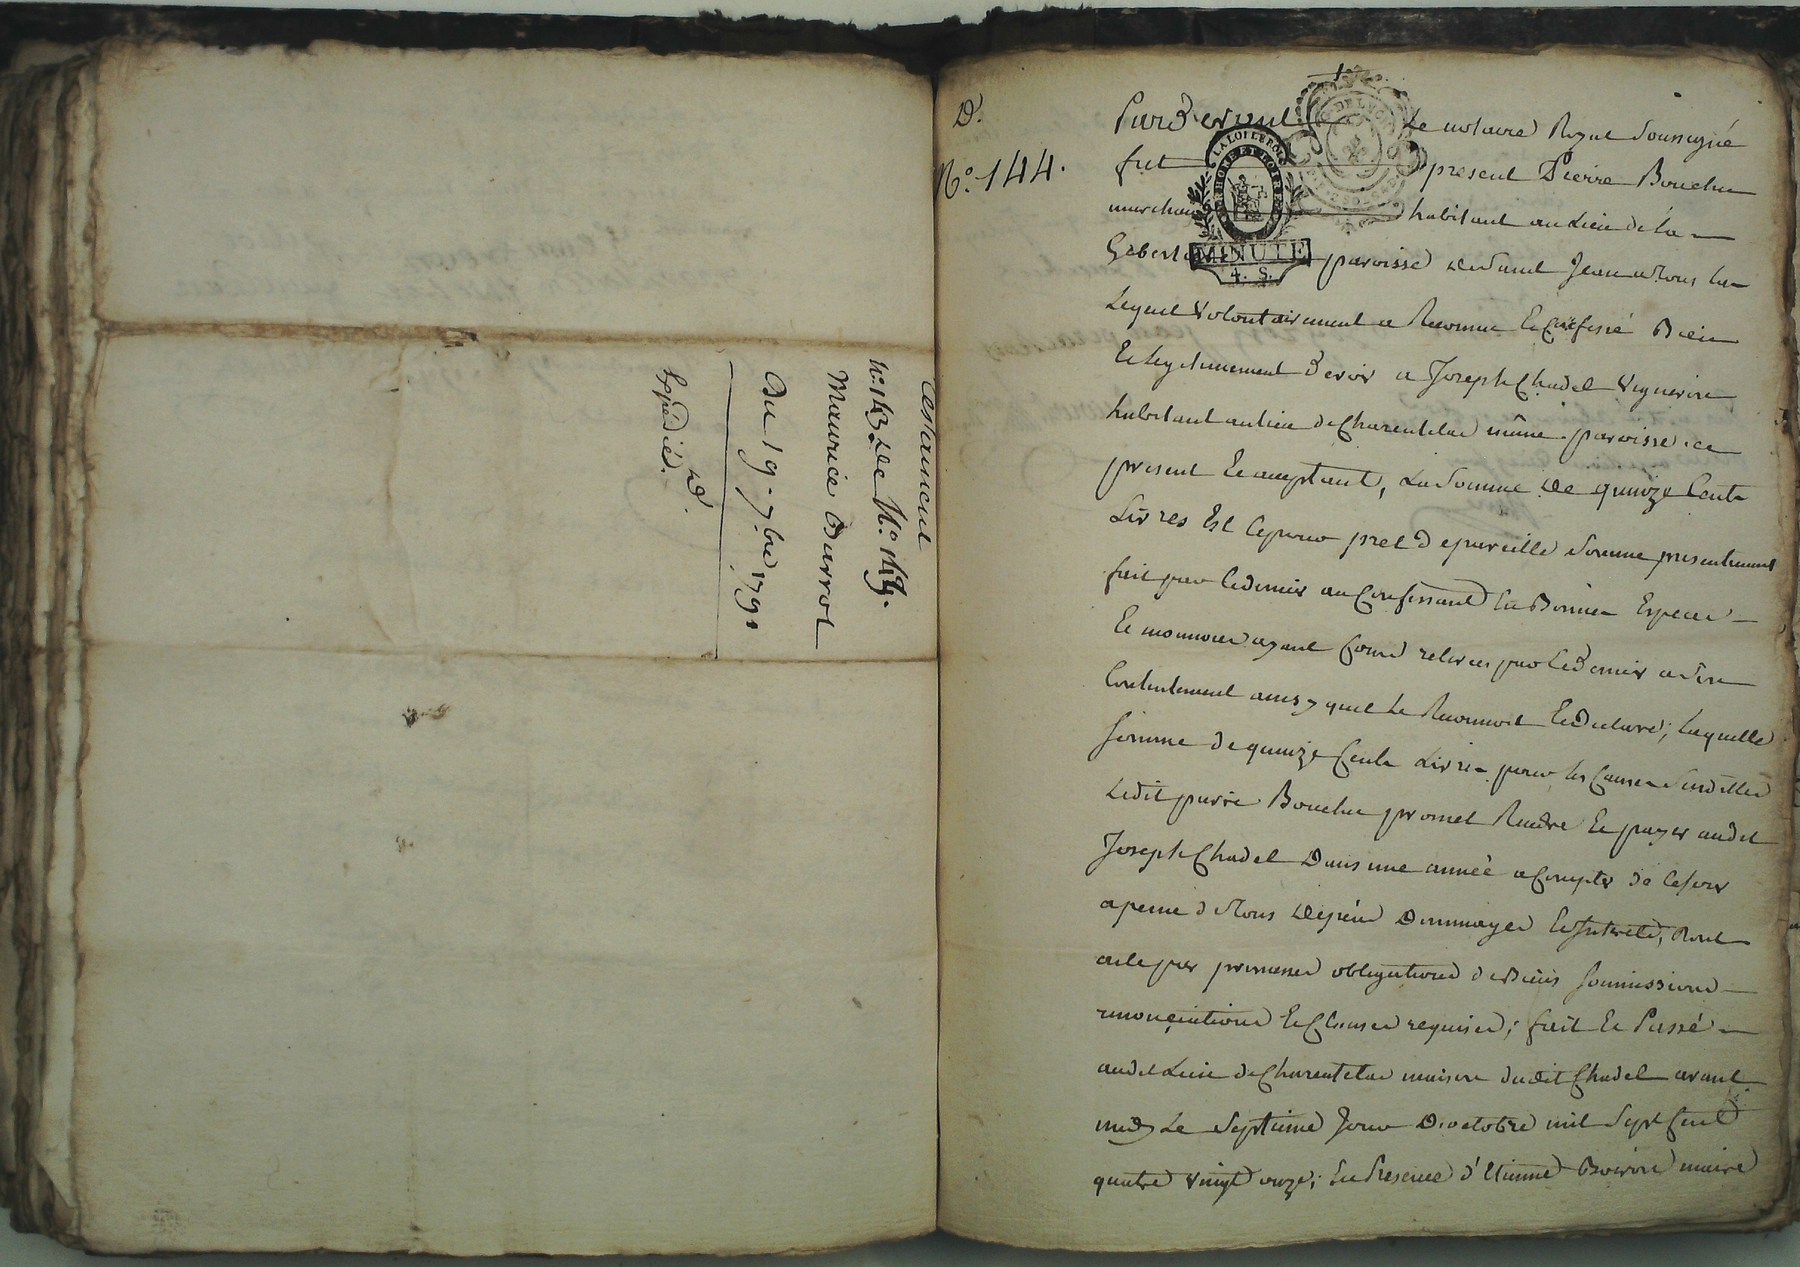 Testament
N.° 143. De N.° 149.
Maurice Durrot
Du 19. 7bre 1791
Expédié. D.
D.
N.° 144.
DE LYON
LA LOI LE ROI
MINUTE
4. S.
Pardevant Le notaire Royal Soussigné
fut present Pierre Bouchu
marchand habitant au Lieu de la
paroisse de Saint Jean
Lequel Volontairement a Reconnu Et Confessé Bien
Et Legitimement Devoir a Joseph Chadel Vigneron
habitant au lieu de Charentelat même paroisse ice
present Et aceptant, La Somme De quinze Cents
Livres Est Ce pour pret De pareille Somme presentement
fait par Ce dernier au Confessant En Bonnes Especes
Et monnoies ayant Cours retirées par Ce Dernier a Son
Contentement ainsy quil Le Reconnoit Et Declare; Laquelle
Somme de quinze Cents Livres pour les Causes Susdittes
Ledit pierre Bouchu promet Rendre Et payer audit
Joseph Chadel Dans une année a Compter de Ce jour
a peine de tous Dépens Dommages Et Interets, Dont
acte par promesses obligations de Biens Soumissions
renonciations Et Clauses requises; fait Et Passé
audit Lieu de Charentelat maison dudit Chadel avant
midy Le Septieme Jour D'octobre mil Sept Cent
quatre Vingt onze; En Presence d'Etienne Boiron maire